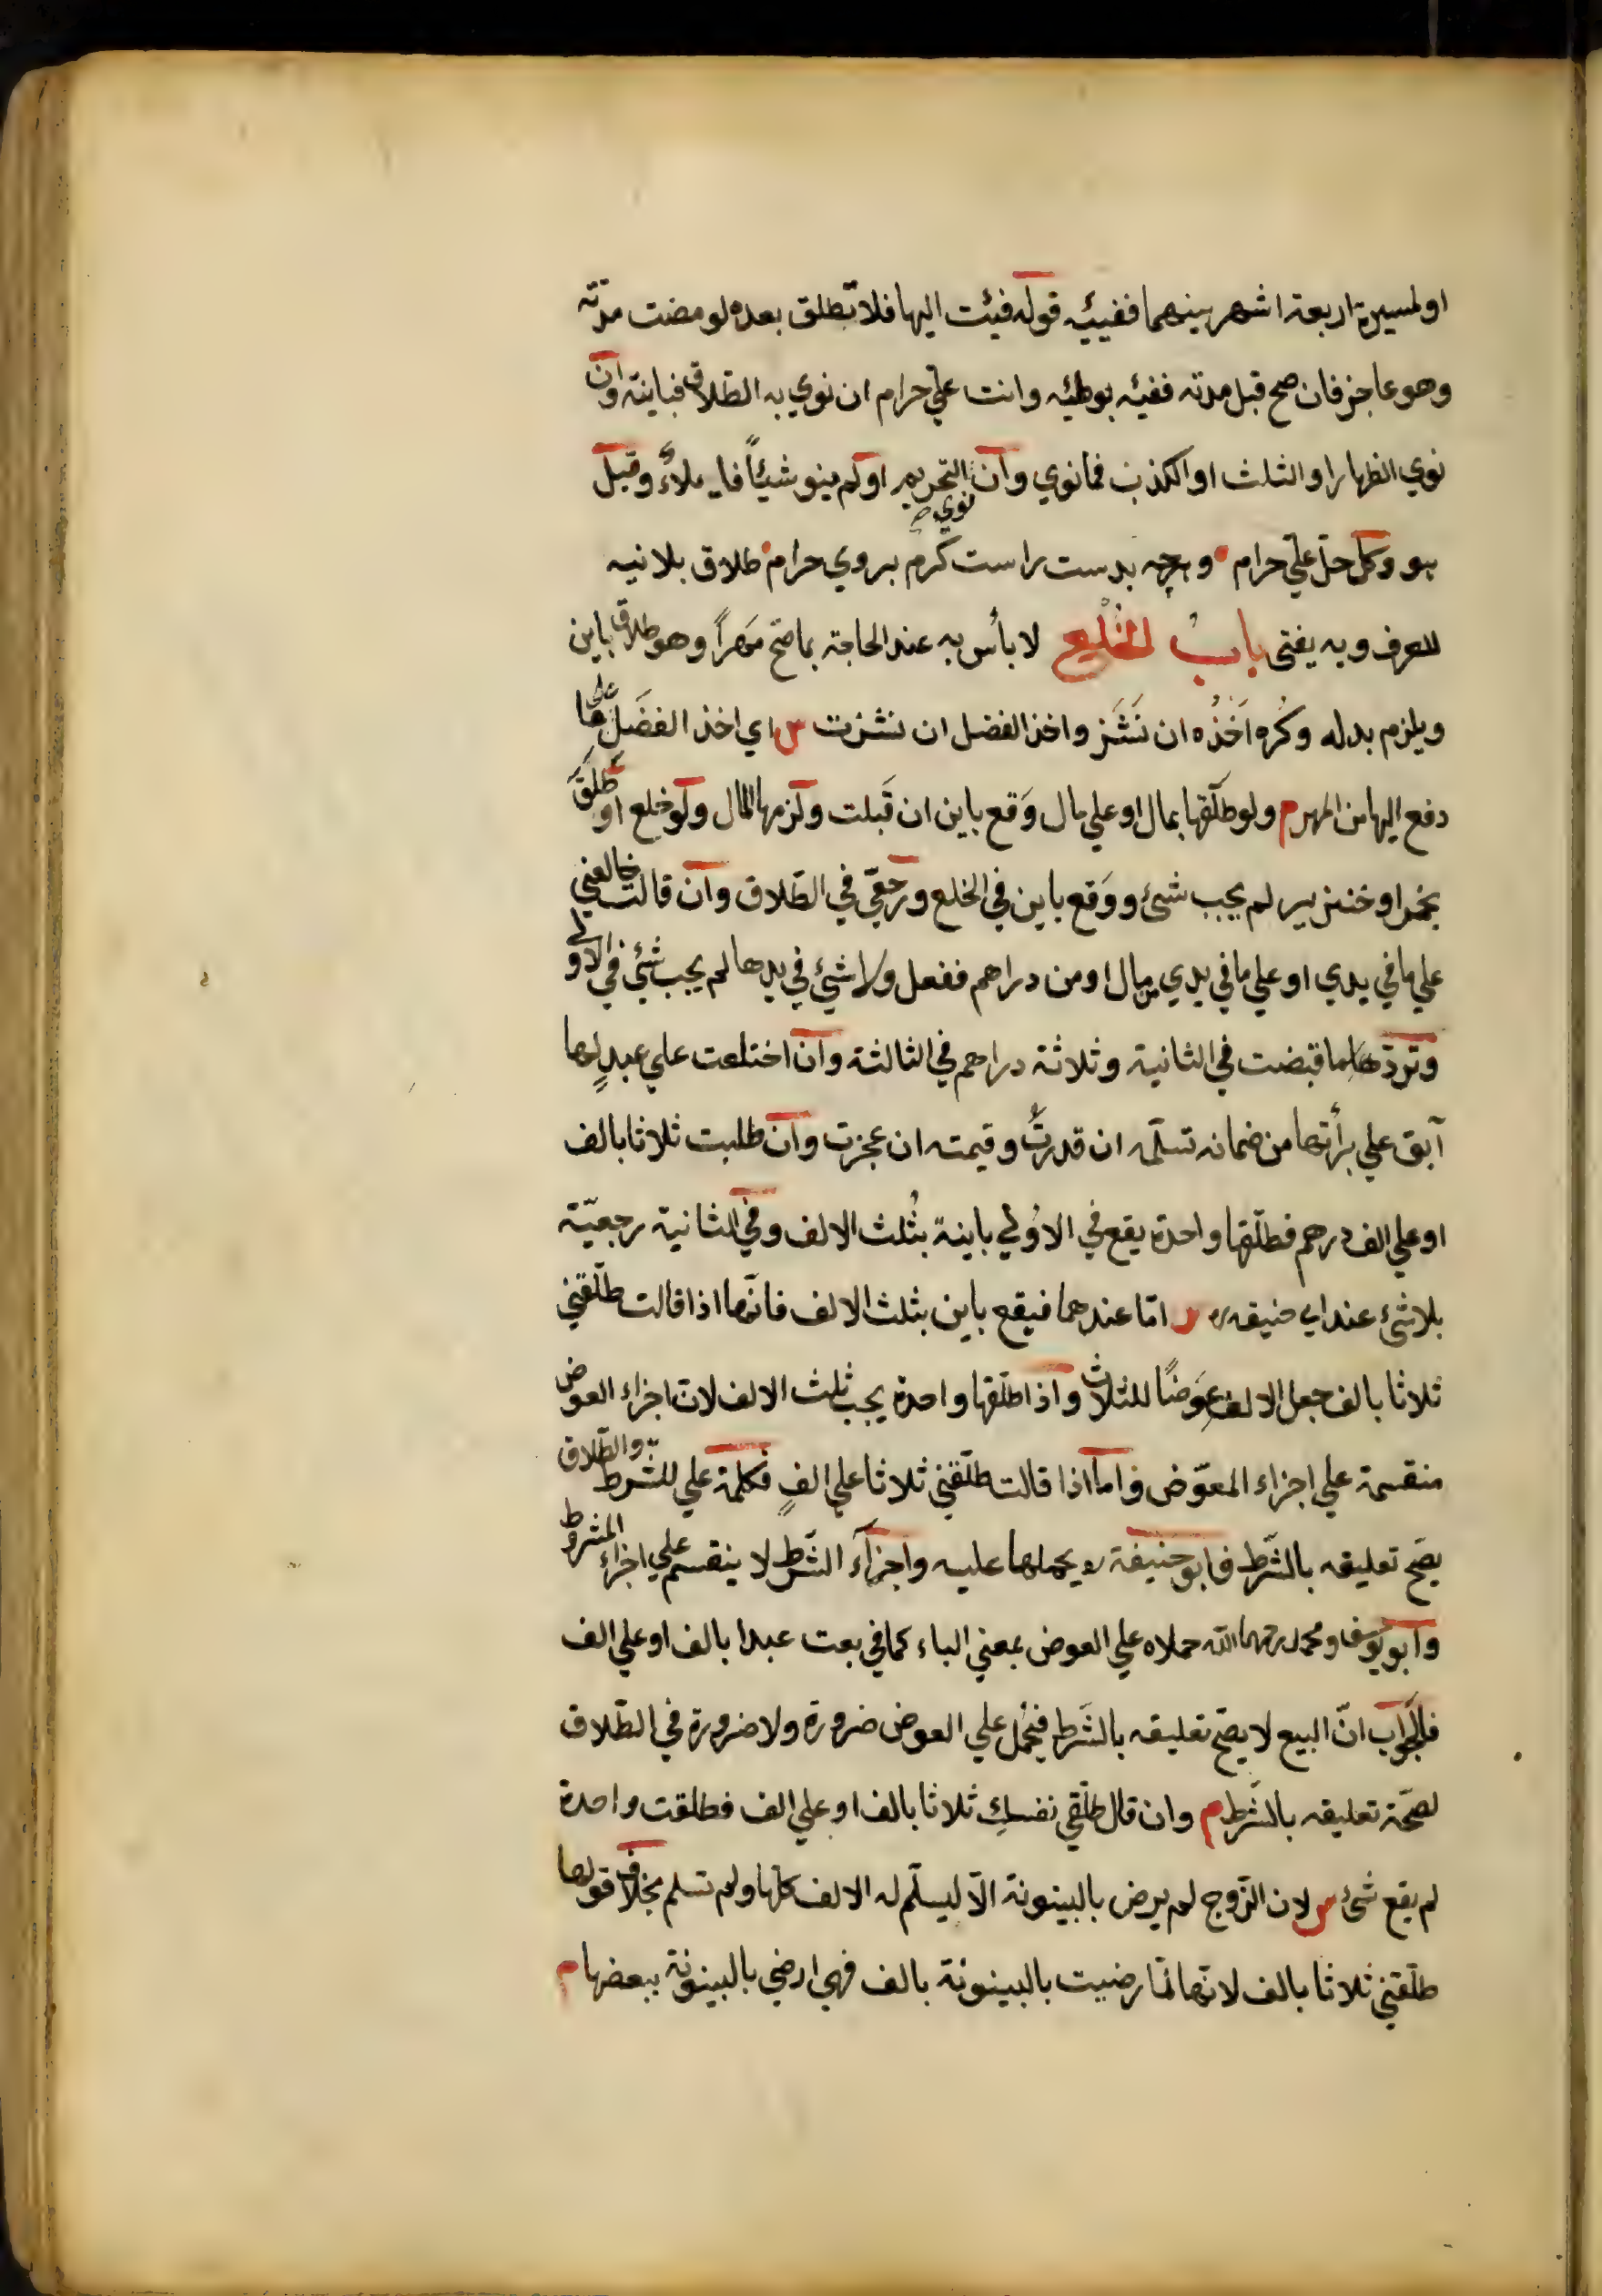 او لمسيرة اربعة اشهر بينهما ففيئه قوله فيئت اليها فلا تطلق بعده لو مضت مدته
وهو عاجز فان صح قبل مدته ففيئه بوطيئه وانت علي حرام ان نوي به الطّلاق فباينة وان
نوي الظهار او الثلث او الكذب فما نوي وان نوي التحريم او لم ينو شيئاً فايلاءٌ وقيل
هو وكل حلّ عليّ حرام وهرچه بدست راست كرم بروي حرام طلاق بلا نيه
للعرف وبه يفتى باب الخلع لا بأس به عند الحاجة بما صح مَهراً وهو طلاق باين
ويلزم بدله وكُره اَخْذُه ان نَشَز واخذ الفضل ان نشزت س اي اخذ الفضل علي ما
دفع اليها من المهر م ولو طلّقها بمال او علي مال وَقع باين ان قَبلت ولزمها المال ولو خلع او طلّق
بخمر او خنزير لم يجب شئ ووَقع باين في الخلع ورجعّي في الطّلاق وان قالت خالعني
علي ما في يدي او علي ما في يدي من مال او من دراهم ففعل ولا شئ في يدها لم يجب شئ في الاولي
وتردّ ما قبضت في الثانية وثلاثة دراهم في الثالثة وان اختلعت علي عبدٍ لها
آبق علي برأتها من ضمانه تسلّمه ان قدرتْ وقيمته ان عجزت وان طلبت ثلاثا بالف
او علي الف درهم فطلّقها واحدة يقع في الاوُلي باينة بثُلث الالف وفي الثانية رجعيّة
بلا شئ عند ابي حنيفه رح س امّا عندهما فيقع باين بثلث الالف فانّها اذا قالت طلّقني
ثلاثا بالف جعل الالف عِوَضًا للثلاث واذا طلّقها واحدة يجب ثلث الالف لانّ اجزاء العوض
منقسمة علي اجزاء المعوّض واما اذا قالت طلّقني ثلاثا علي الفٍ فكلمة علي للشّرط والطّلاق
يصّح تعليقه بالشّرط فابو حنيفة رح يحملها عليه واجزآء الشّرط لا ينقسم علي اجزاء المشروط
وابو يوسف ومحمد رحمهما الله حملاه علي العوض بمعني الباء كما في بعت عبدا بالف او علي الف
فالجواب انّ البيع لا يصّح تعليقه بالشّرط فيحْمل علي العوض ضرورة ولا ضرورة في الطّلاق
لصّحة تعليقه بالشّرط م وان قال طلّقي نفسكِ ثلاثا بالف او علي الف فطلقت واحدة
لم يقع شئ س لان الزّوج لم يرض بالبينونة الّا ليسلّم له الالف كلّها ولم تسلم بخلاف قولها
طلّقني ثلاثا بالف لانّها لمّا رضيت بالبينونة بالف فهي ارضي بالبينونة ببعضها م